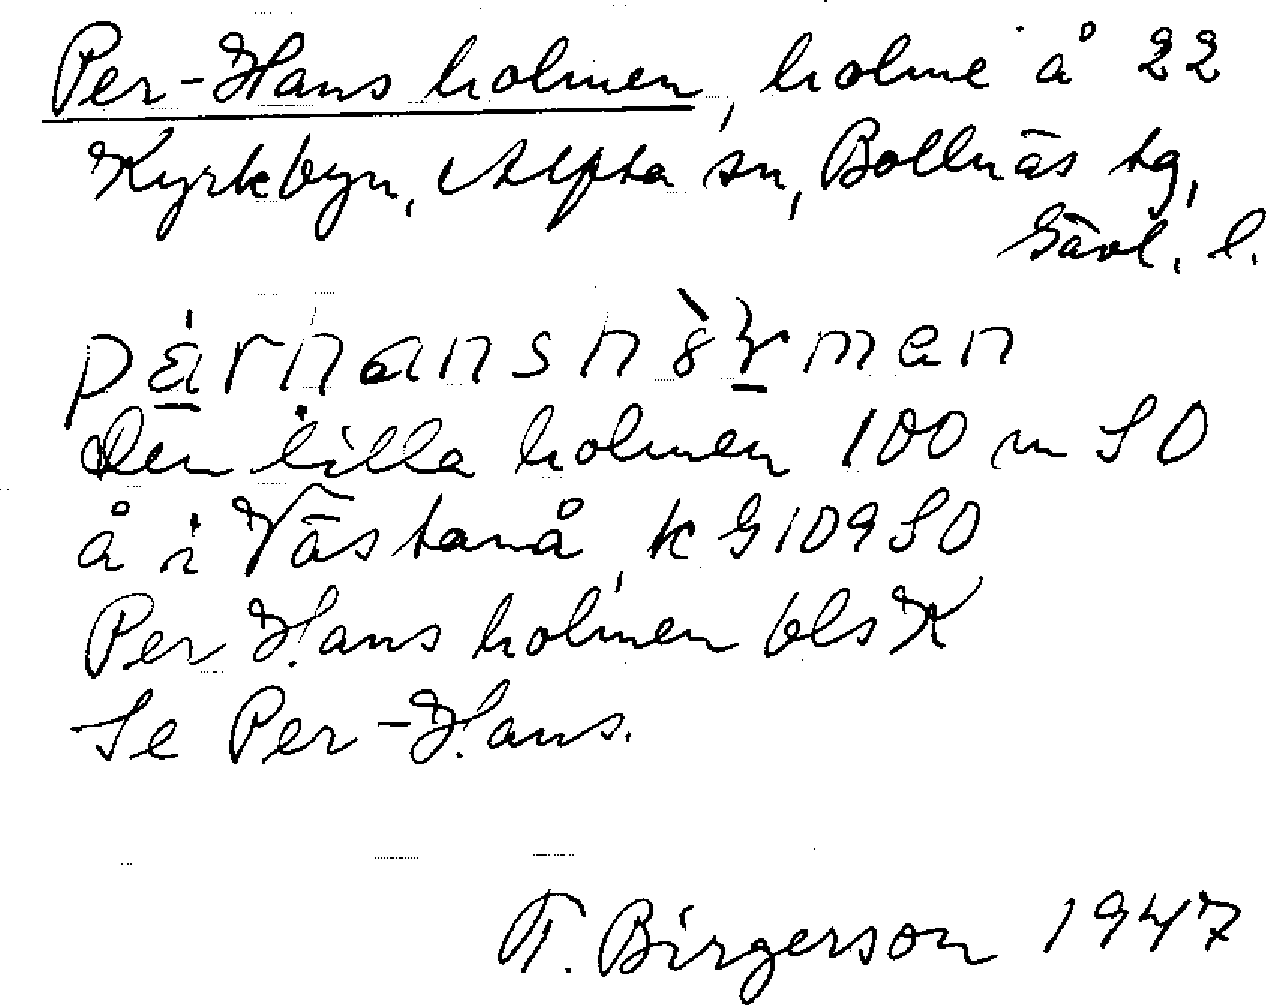 Per-Hans holmen, holme å 22
Kyrkbyn, Alfta sn, Bollnäs tg,
Gävl. l.
Den lilla holmen 100 m SO
å i Västanå, k G109SO
Per Hans holmen bls K
Se Per-Hans.
T. Birgerson 1947